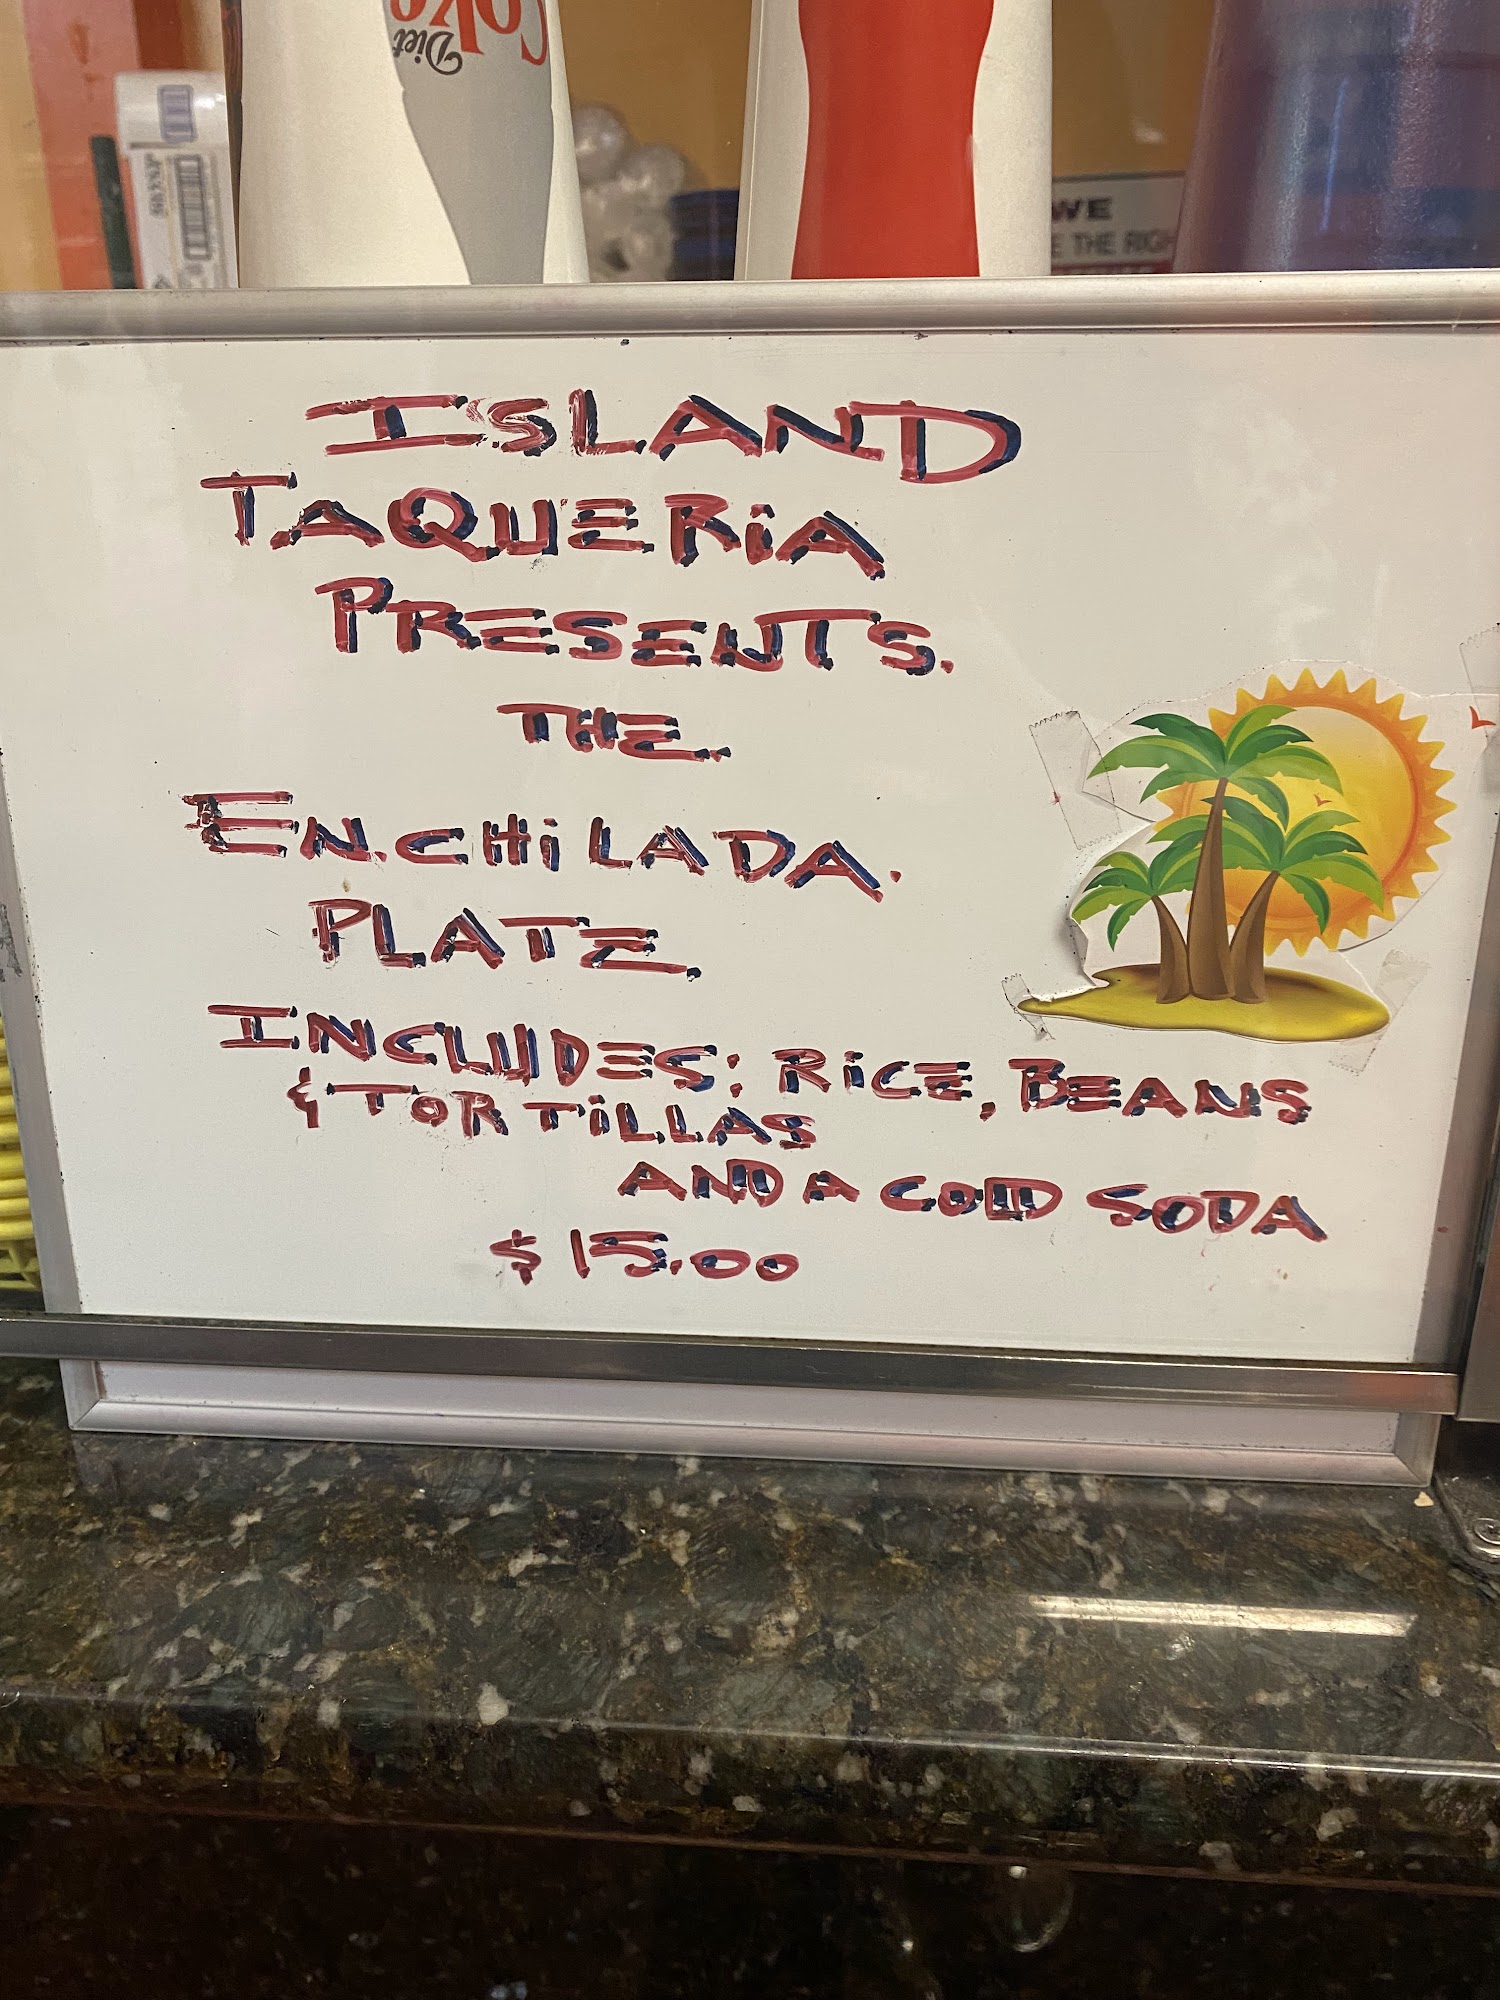 Diet
Coke
WE
E THE RIGH
ISLAND
TAQUERiA
PRESENTS.
THE.
EN.CHiLADA.
PLATE.
INCLUDES: RiCE, BEANS
& TORTiLLAS
AND A COLD SODA
$15.00